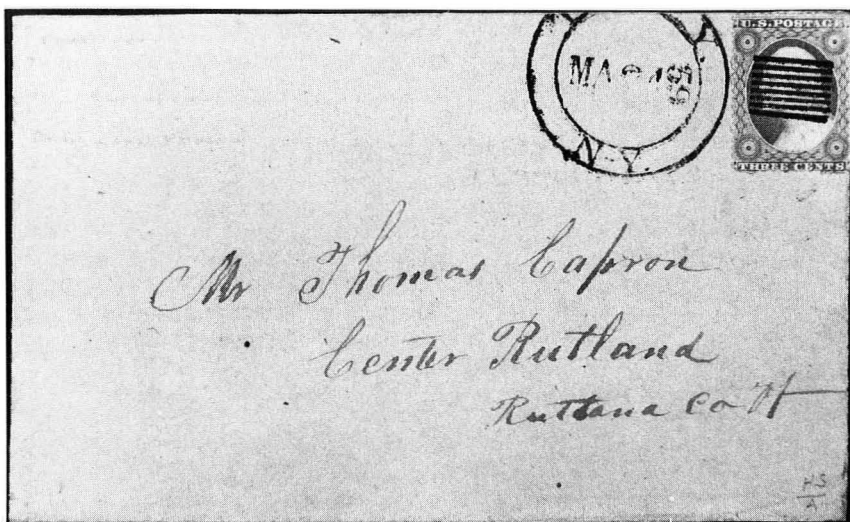 U.S. POSTAGE
THREE CENTS
N.Y.
Mr Thomas Capron
Center Rutland
Rutland Co Vt